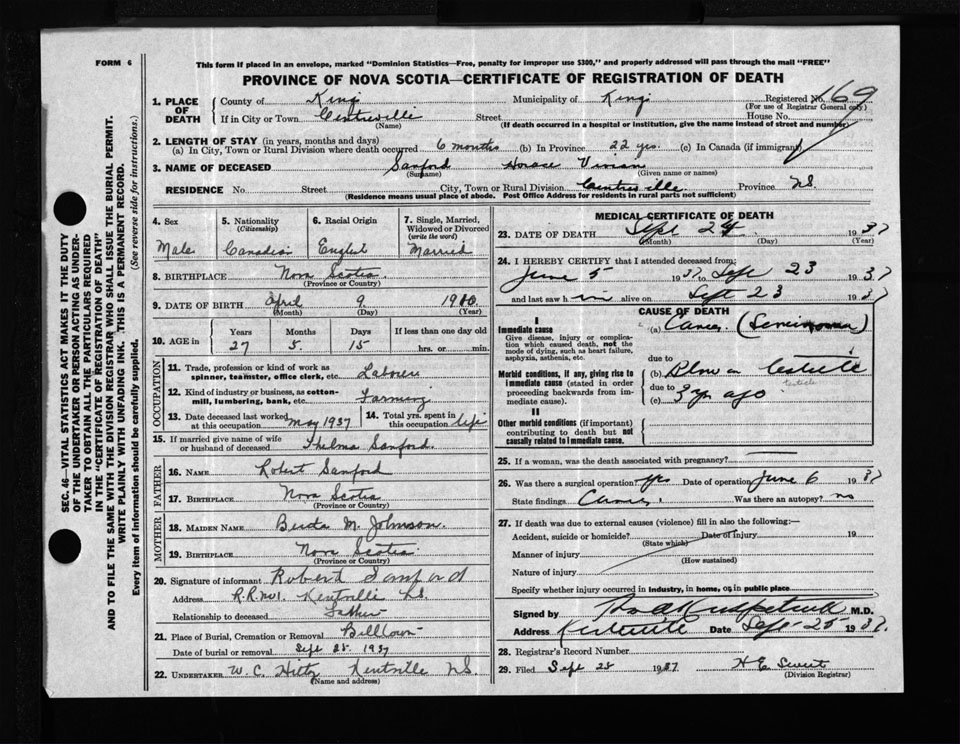 FORM 6
This form if placed in an envelope, marked "Dominion Statistics—Free, penalty for improper use $300," and properly addressed will pass through the mail "FREE"
PROVINCE OF NOVA SCOTIA—CERTIFICATE OF REGISTRATION OF DEATH
SEC. 46—VITAL STATISTICS ACT MAKES IT THE DUTY
OF THE UNDERTAKER OR PERSON ACTING AS UNDER-
TAKER TO OBTAIN ALL THE PARTICULARS REQUIRED
IN THE "CERTIFICATE OF REGISTRATION OF DEATH"
AND TO FILE THE SAME WITH THE DIVISION REGISTRAR WHO SHALL ISSUE THE BURIAL PERMIT.
WRITE PLAINLY WITH UNFADING INK. THIS IS A PERMANENT RECORD.
Every item of information should be carefully supplied. (See reverse side for instructions.)
1. PLACE OF DEATH County of Kings Municipality of Kings Registered No. 169
(For use of Registrar General only)
If in City or Town Centreville Street House No.
(Name) (If death occurred in a hospital or institution, give the name instead of street and number)
2. LENGTH OF STAY (in years, months and days)
(a) In City, Town or Rural Division where death occurred 6 months (b) In Province 22 yrs. (c) In Canada (if immigrant)
3. NAME OF DECEASED Sanford Horace Vivian
(Surname) (Given name or names)
RESIDENCE No. Street City, Town or Rural Division Centreville Province N.S.
(Residence means usual place of abode. Post Office Address for residents in rural parts not sufficient)
4. Sex Male
5. Nationality (Citizenship) Canadian
6. Racial Origin English
7. Single, Married, Widowed or Divorced (write the word) Married
8. BIRTHPLACE Nova Scotia
(Province or Country)
9. DATE OF BIRTH April 9 1910
(Month) (Day) (Year)
10. AGE in Years 27 Months 5 Days 15 If less than one day old hrs. or min.
OCCUPATION
11. Trade, profession or kind of work as spinner, teamster, office clerk, etc. Laborer
12. Kind of industry or business, as cotton-mill, lumbering, bank, etc. Farming
13. Date deceased last worked at this occupation May 1937 14. Total yrs. spent in this occupation life
15. If married give name of wife or husband of deceased Thelma Sanford
FATHER
16. NAME Robert Sanford
17. BIRTHPLACE Nova Scotia
(Province or Country)
MOTHER
18. MAIDEN NAME M. Johnson
19. BIRTHPLACE Nova Scotia
(Province or Country)
20. Signature of informant Robert Sanford
Address R.R. No 1. Kentville N.S.
Relationship to deceased Father
21. Place of Burial, Cremation or Removal Billtown
Date of burial or removal Sept 28. 1937
22. UNDERTAKER W. C. Hiltz Kentville N.S.
(Name and address)
MEDICAL CERTIFICATE OF DEATH
23. DATE OF DEATH Sept 24 1937
(Month) (Day) (Year)
24. I HEREBY CERTIFY that I attended deceased from:
June 5 1937 to Sept 23 1937
and last saw him alive on Sept 23 1937
CAUSE OF DEATH
I
Immediate cause (a) Cancer (Seminoma)
Give disease, injury or complication which caused death, not the mode of dying, such as heart failure, asphyxia, asthenia, etc.
due to
Morbid conditions, if any, giving rise to immediate cause (stated in order proceeding backwards from immediate cause). (b) Blow on testicle
testicle
due to
(c) 3 yrs ago
II
Other morbid conditions (if important) contributing to death but not causally related to immediate cause.
25. If a woman, was the death associated with pregnancy?
26. Was there a surgical operation? yes Date of operation June 6 1937
State findings Cancer Was there an autopsy? no
27. If death was due to external causes (violence) fill in also the following:—
Accident, suicide or homicide? Date of injury 19
(State which)
Manner of injury
(How sustained)
Nature of injury
Specify whether injury occurred in industry, in home, or in public place
Signed by M.D.
Address Kentville Date Sept 25 1937.
28. Registrar's Record Number
29. Filed Sept 28 1937 H E Sweet
(Division Registrar)